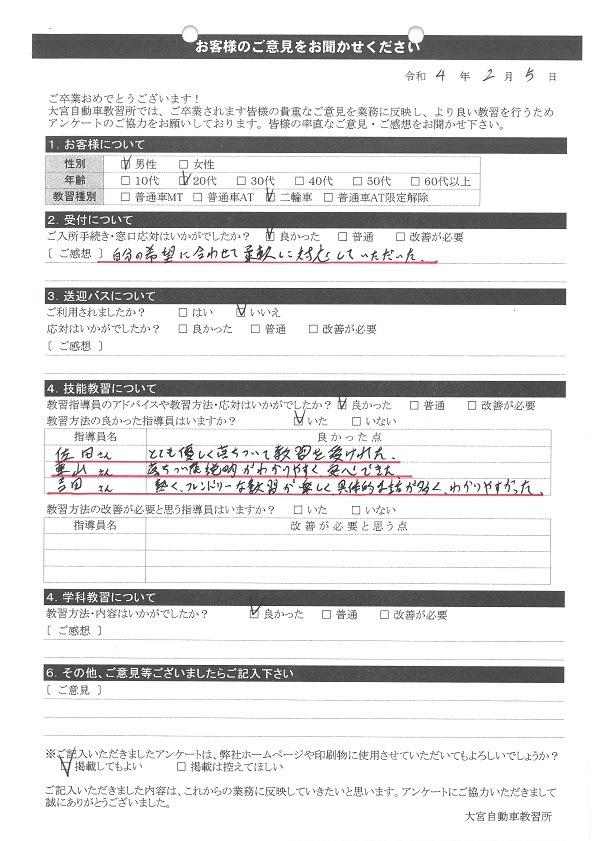 お客様のご意見をお聞かせください
令和 4 年 2 月 5 日
ご卒業おめでとうございます！
大宮自動車教習所では、ご卒業されます皆様の貴重なご意見を業務に反映し、より良い教習を行うため
アンケートのご協力をお願いしております。皆様の率直なご意見・ご感想をお聞かせ下さい。
1. お客様について
性別 ☑ 男性 □ 女性
年齢 □ 10代 ☑ 20代 □ 30代 □ 40代 □ 50代 □ 60代以上
教習種別 □ 普通車MT □ 普通車AT ☑ 二輪車 □ 普通車AT限定解除
2. 受付について
ご入所手続き・窓口応対はいかがでしたか？ ☑ 良かった □ 普通 □ 改善が必要
〔 ご感想 〕 自分の希望に合わせて柔軟に対応していただいた。
3. 送迎バスについて
ご利用されましたか？ □ はい ☑ いいえ
応対はいかがでしたか？ □ 良かった □ 普通 □ 改善が必要
〔 ご感想 〕
4. 技能教習について
教習指導員のアドバイスや教習方法・応対はいかがでしたか？ ☑ 良かった □ 普通 □ 改善が必要
教習方法の良かった指導員はいますか？ ☑ いた □ いない
指導員名 良かった点
佐田さん とても優しく落ちついて教習を受けれた。
さん 落ちついた説明がわかりやすく安心できた
吉田さん 熱く、フレンドリーな教習が楽しく具体的な話が多く、わかりやすかった。
教習方法の改善が必要と思う指導員はいますか？ □ いた □ いない
指導員名 改善が必要と思う点
4. 学科教習について
教習方法・内容はいかがでしたか？ ☑ 良かった □ 普通 □ 改善が必要
〔 ご感想 〕
6. その他、ご意見等ございましたらご記入下さい
〔 ご意見 〕
※ご記入いただきましたアンケートは、弊社ホームページや印刷物に使用させていただいてもよろしいでしょうか？
☑ 掲載してもよい □ 掲載は控えてほしい
ご記入いただきました内容は、これからの業務に反映していきたいと思います。アンケートにご協力いただきまして
誠にありがとうございました。
大宮自動車教習所